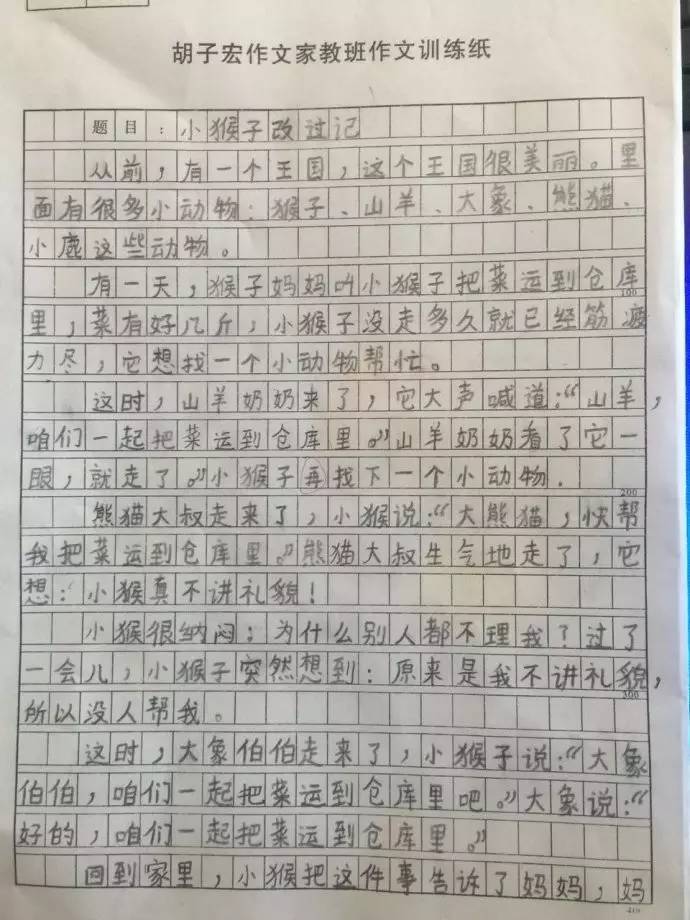 胡子宏作文家教班作文训练纸
题目：小猴子改过记
从前，有一个王国，这个王国很美丽。里
面有很多小动物：猴子、山羊、大象、熊猫、
小鹿这些动物。
有一天，猴子妈妈叫小猴子把菜运到仓库
100
里，菜有好几斤，小猴子没走多久就已经筋疲
力尽，它想找一个小动物帮忙。
这时，山羊奶奶来了，它大声喊道：“山羊，
咱们一起把菜运到仓库里。”山羊奶奶看了它一
眼，就走了。”小猴子再找下一个小动物．
200
熊猫大叔走来了，小猴说：“大熊猫，快帮
我把菜运到仓库里。”熊猫大叔生气地走了，它
想：小猴真不讲礼貌！
小猴很纳闷：为什么别人都不理我？过了
一会儿，小猴子突然想到：原来是我不讲礼貌，
300
所以没人帮我。
这时，大象伯伯走来了，小猴子说：“大象
伯伯，咱们一起把菜运到仓库里吧。”大象说：“
好的，咱们一起把菜运到仓库里。”
回到家里，小猴把这件事告诉了妈妈，妈